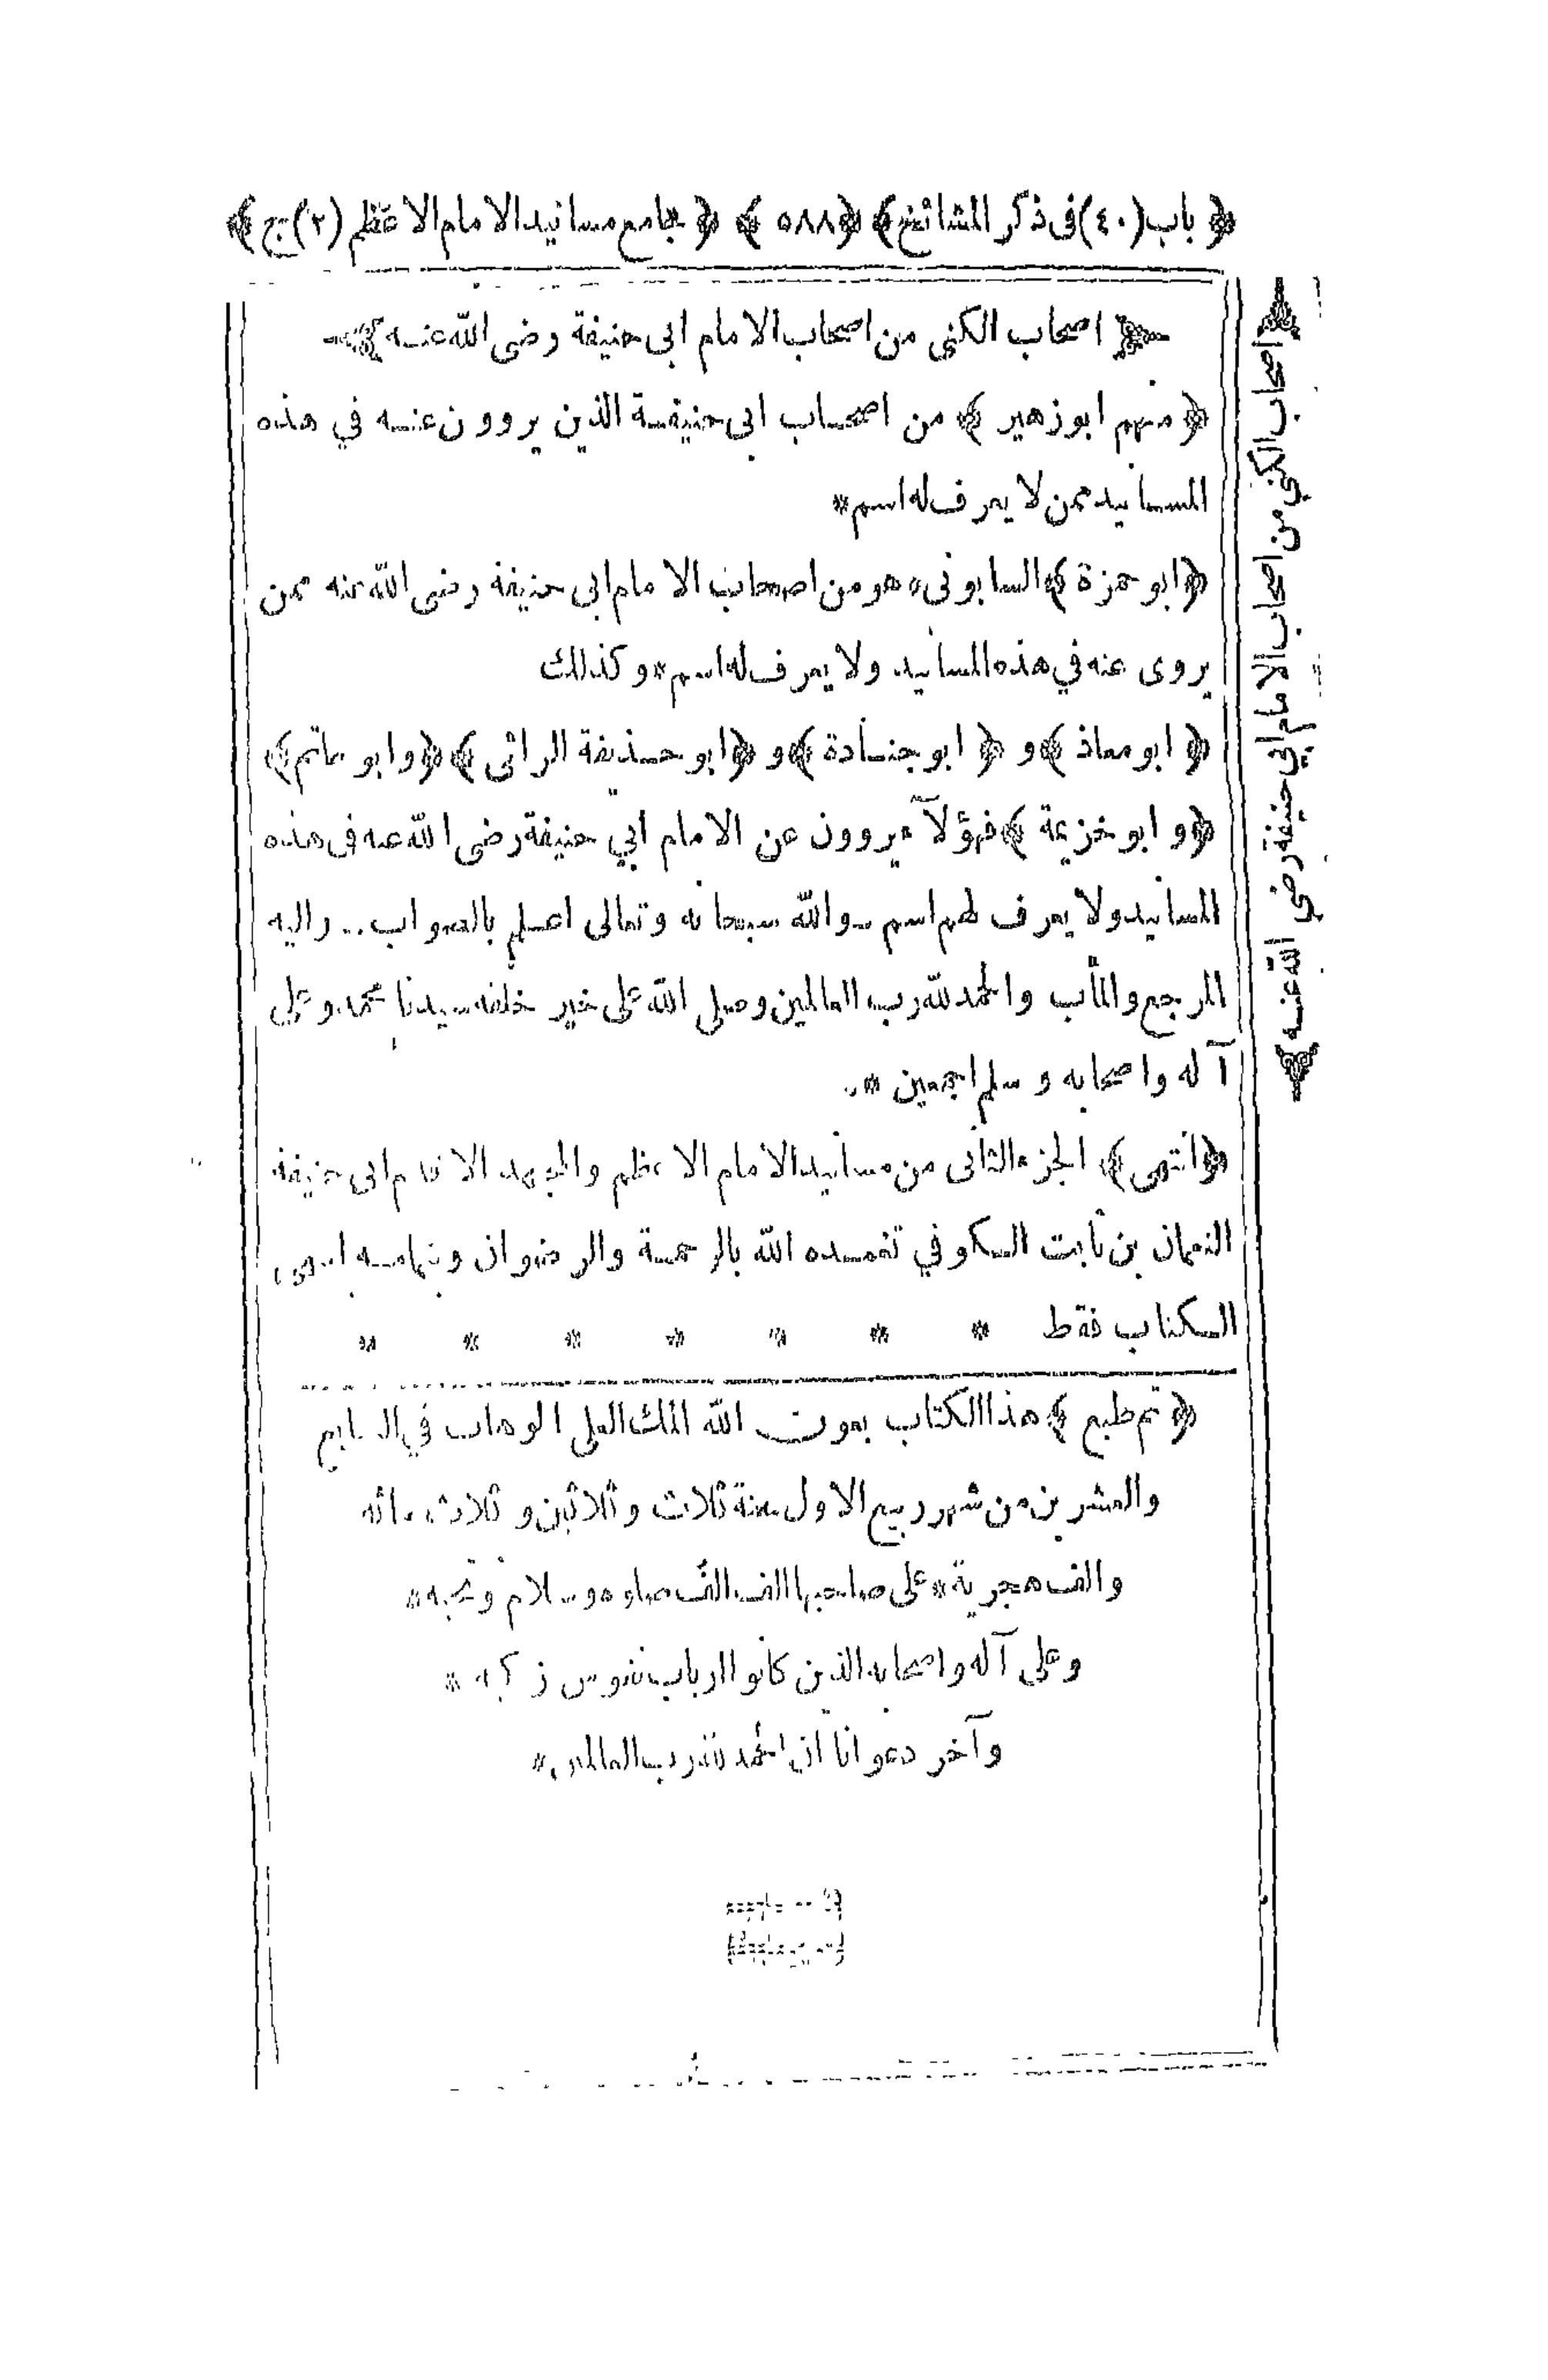 ﴿ باب (٤٠) فى ذكر المشائخ ﴾ ﴿ ٥٨٨ ﴾ ﴿ جامع مسانيد الامام الاعظم (٢) ج ﴾
اصحاب الكنى من اصحاب الامام ابى حنيفة رضى الله عنه
﴿ منهم ابو زهير ﴾ من اصحاب ابى حنيفة الذين يروون عنه في هذه
المسانيد ممن لا يعرف له اسم *
﴿ ابو حمزة ﴾ السابونى * هو من اصحاب الامام ابى حنيفة رضى الله عنه ممن
يروى عنه في هذه المسانيد ولا يعرف له اسم * وكذلك
﴿ ابو معاذ ﴾ و ﴿ ابو جنادة ﴾ و ﴿ ابو حذيفة الرائى ﴾ ﴿ وابو حاتم ﴾
﴿ و ابو خزيمة ﴾ فهؤلآء يروون عن الامام ابي حنيفة رضى الله عنه فى هذه
المسانيد ولا يعرف لهم اسم والله سبحانه وتعالى اعلم بالصواب .. واليه
المرجع والمآب والحمد لله رب العالمين وصلى الله على خير خلقه سيدنا محمد وعلي
آله واصحابه و سلم اجمعين *
﴿ انتهى ﴾ الجزء الثانى من مسانيد الامام الاعظم والمجتهد الاقدم ابى حنيفة
النعمان بن ثابت الكوفي تغمده الله بالرحمة والرضوان وبتمامه انتهى
الكتاب فقط * * * * * * *
﴿ تم طبع ﴾ هذا الكتاب بعون الله الملك العلى الوهاب في السابع
والعشرين من شهر ربيع الاول سنة ثلاث وثلاثين و ثلاث مائه
والف هجرية * على صاحبها الف الف صلوة وسلام وتحيه *
وعلى آله واصحابه الذين كانوا ارباب نفوس زكيه *
وآخر دعوانا ان الحمد لله رب العالمين *
اصحاب الكنى من اصحاب الامام ابي حنيفة رضي الله عنه